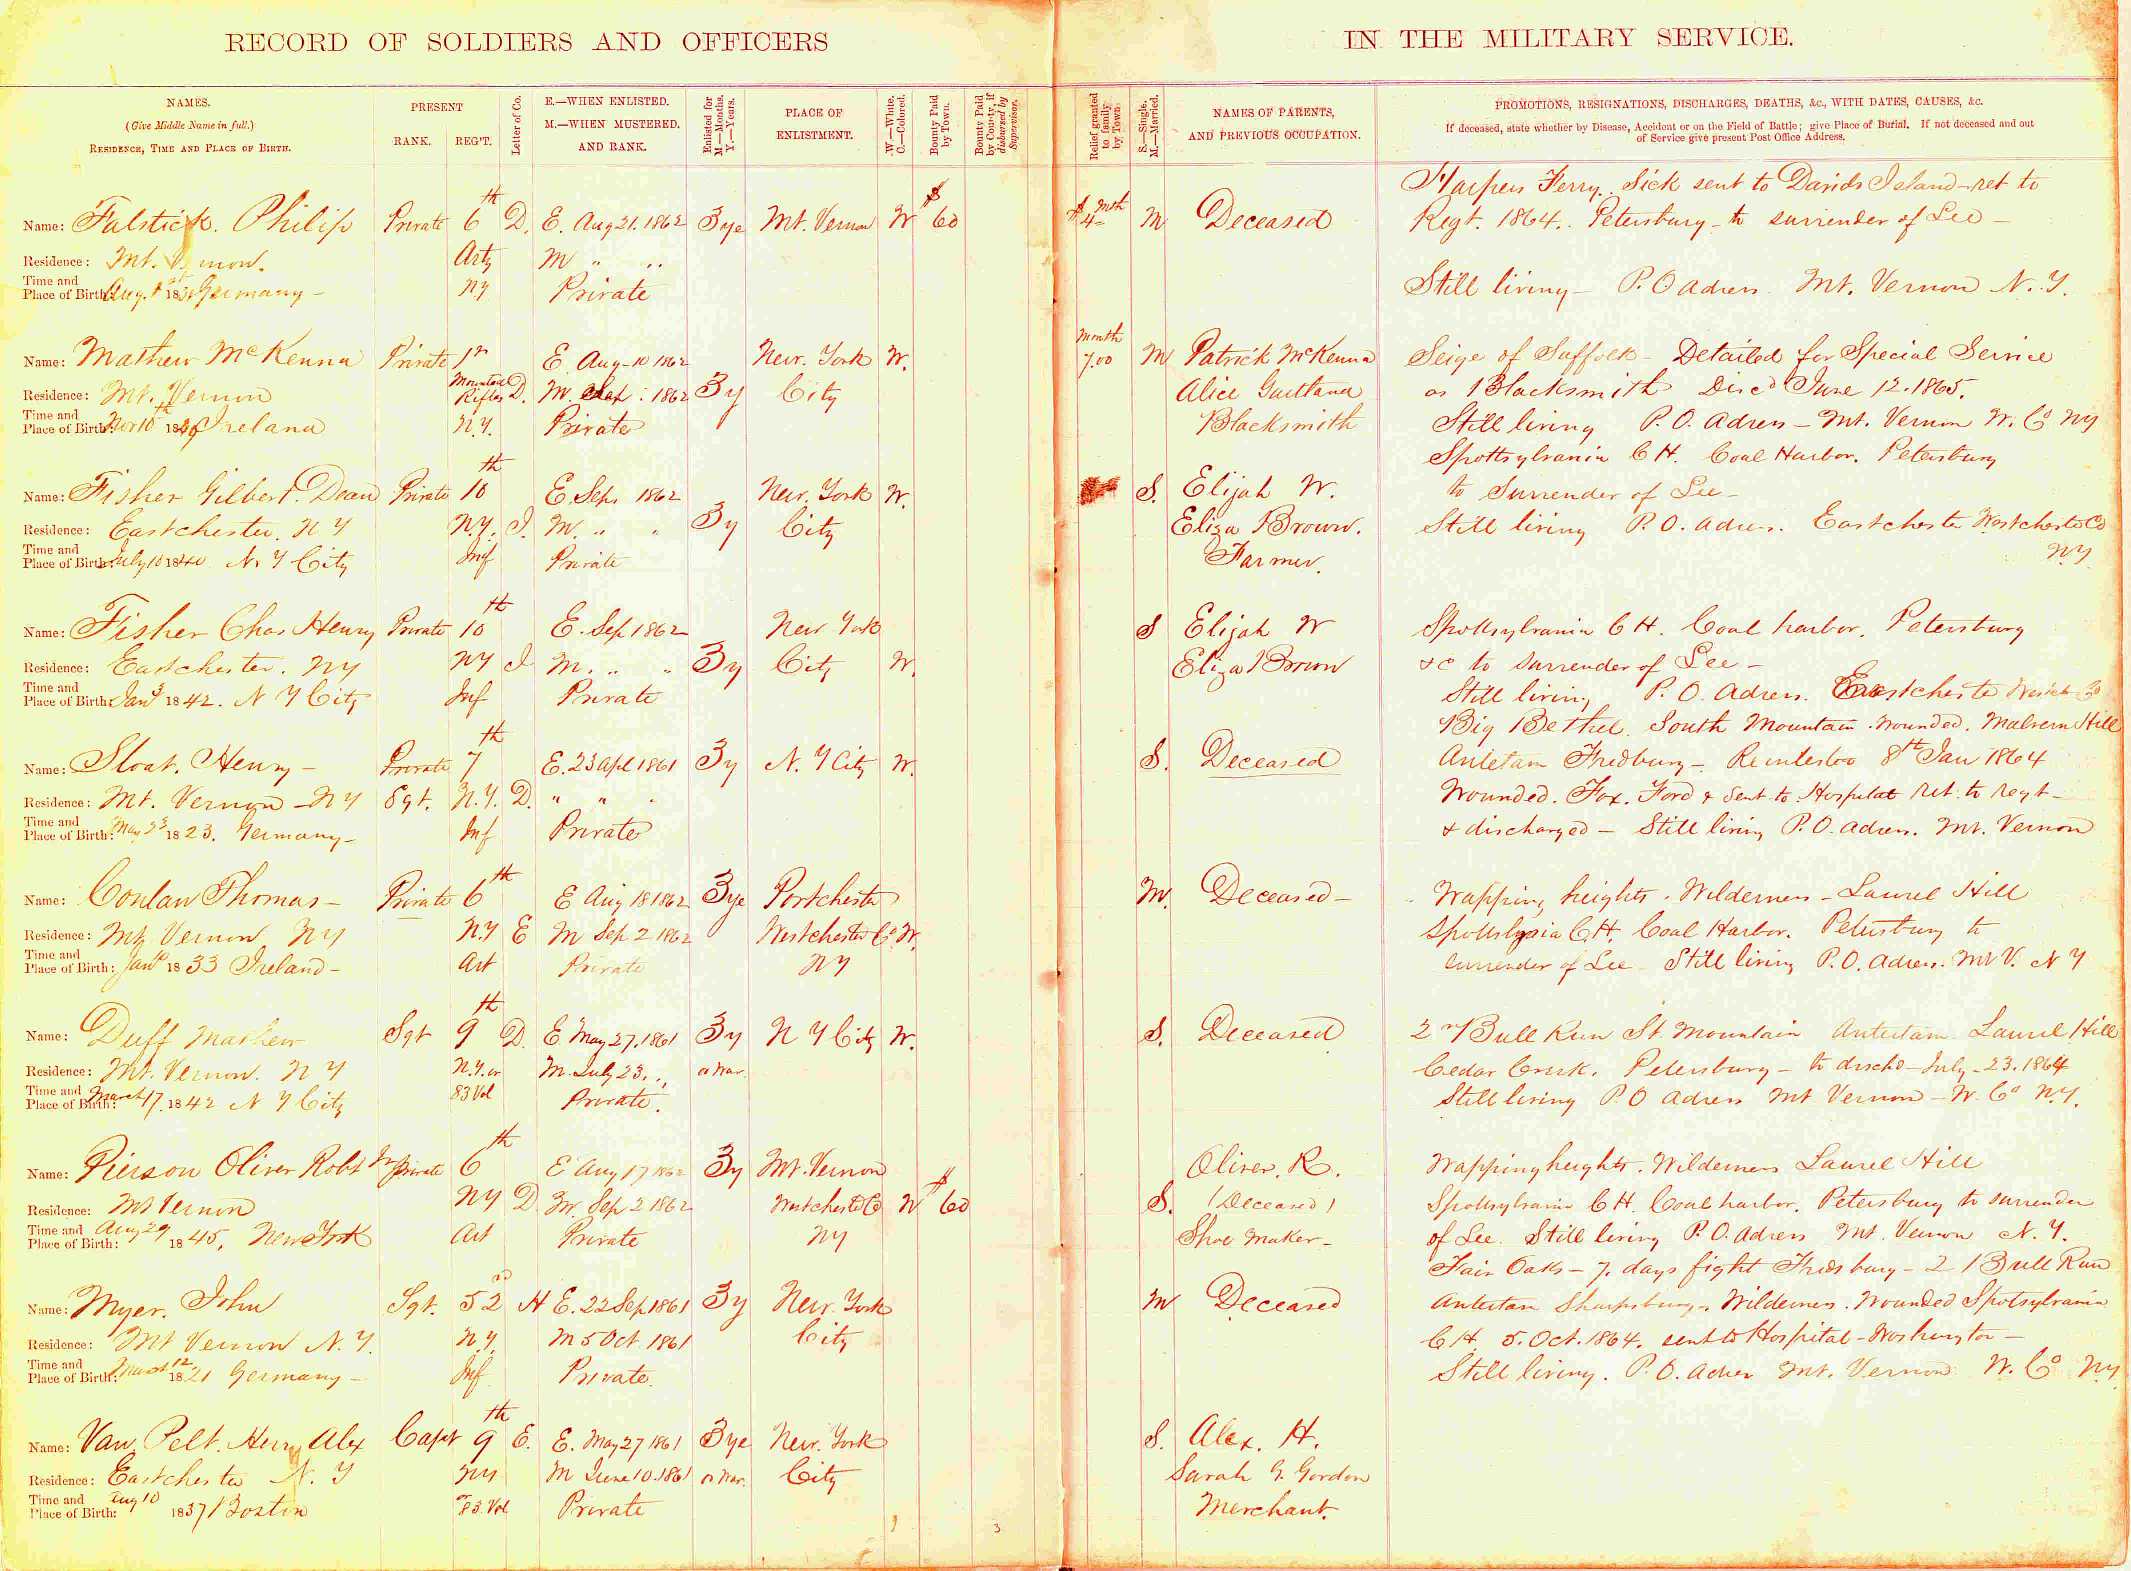 RECORD OF SOLDIERS AND OFFICERS IN THE MILITARY SERVICE.
NAMES.
(Give Middle Name in full.)
RESIDENCE, TIME AND PLACE OF BIRTH.
PRESENT
RANK. REG'T.
Letter of Co.
E.—WHEN ENLISTED.
M.—WHEN MUSTERED.
AND RANK.
Enlisted for
M—Months.
Y.—Years.
PLACE OF
ENLISTMENT.
W.—White.
C.—Colored.
Bounty Paid
by Town.
Bounty Paid
by County, if
disbursed by
Supervisor.
Relief granted
to family
by Town.
S.—Single.
M.—Married.
NAMES OF PARENTS,
AND PREVIOUS OCCUPATION.
PROMOTIONS, RESIGNATIONS, DISCHARGES, DEATHS, &c., WITH DATES, CAUSES, &c.
If deceased, state whether by Disease, Accident or on the Field of Battle; give Place of Burial. If not deceased and out
of Service give present Post Office Address.
Harpers Ferry. Sick sent to Davids Island—ret to
Name: Falstick. Philip Private 6th D. E. Aug 21. 1862 3 ye Mt. Vernon W $60 $4 mth M Deceased Regt. 1864.. Petersburg—to surrender of Lee—
Residence: Mt. Vernon. Arty M " "
Time and
Place of Birth: Aug. 1st Germany— NY Private Still living— P.O adress Mt. Vernon N.Y.
Month
Name: Mathew McKenna Private 1st E Aug 10 1862 New. York W. 7.00 M Patrick McKenna Seige of Suffolk— Detailed for Special Service
Residence: Mt. Vernon Mounted Rifles D. M. Sep: 1862 3 y City Alice as Blacksmith Discd June 12. 1865.
Time and
Place of Birth: Nov 10th Ireland N.Y. Private Blacksmith Still living P.O. adress—Mt. Vernon W. Co NY
Spottsylvania C H. Coal Harbor. Petersburg
Name: Fisher Gilbert. Dean Private 10th E. Sep. 1862 New. York W. S. Elijah W. to Surrender of Lee—
Residence: Eastchester. NY N.Y. I. M. " " 3 y City Eliza Brown. Still living P.O. adress. Eastchester Westchester Co
Time and
Place of Birth: July 10 1840 N. Y City Inf Private Farmer. NY.
Name: Fisher Chas Henry Private 10th E. Sep 1862 New York S Elijah W Spottsylvania C H. Coal harbor. Petersburg
Residence: Eastchester. NY NY I M. " " 3 y City W. Eliza Brown &c to surrender of Lee—
Time and
Place of Birth: Jany 3 1842. N Y City Inf Private Still living P.O. adress. Eastchester
Big Bethel. South Mountain. wounded. Malvern Hill
Name: Sloat. Henry— Private 7th E. 23 apl 1861 3 y N. Y City W. S. Deceased Antetam Fredburg—. Reinlisted 8th Jan 1864
Residence: Mt. Vernon—NY Sgt. N.Y. D. " " " Wounded. Fox. Ford & sent to Hospital ret. to regt—
Time and
Place of Birth: May 23 1823. Germany— Inf Private & discharged—Still living P.O. adress. Mt. Vernon
Name: Conlan Thomas— Private 6th E Aug 18 1862 3 ye Portchester M. Deceased— Wapping heights. Wilderness—Laurel Hill
Residence: Mt Vernon NY N.Y E M Sep 2 1862 Westchester Co W. C.H. Coal Harbor. Petersburg to
Time and
Place of Birth: Jany 1833 Ireland— Art Private NY surrender of Lee. Still living P.O. adress. Mt V. N Y
Name: Duff Mathew Sgt 9th D. E May 27. 1861 3 y N Y City W. S. Deceased 2nd Bull Run St. Mountain Antietam. Laurel Hill
Residence: Mt. Vernon. N Y N.Y. or M. July 23. " or War. Cedar Creek. Petersburg—to dischd—July. 23. 1864
Time and
Place of Birth: March 17. 1842 N Y City 83 Vol Private. Still living P.O adress Mt Vernon—W. Co N.Y.
Name: Pierson Oliver Robt Jr Private 6th E Aug 17 1862 3 y Mt. Vernon Oliver. R. Wapping heights. Wilderness Laurel Hill
Residence: Mt Vernon NY D M. Sep 2 1862 Westchester Co W $60 S. (Deceased) Spottsylvania C H. Coal harbor. Petersburg to surrender
Time and
Place of Birth: Aug 29 1845, New York Art Private NY Shoe Maker— of Lee. Still living P.O. adress Mt. Vernon N. Y.
Fair Oaks—7. days fight Fredsburg—2 Bull Run
Name: Myer. John Sgt. 52nd H E. 22 Sep 1861 3 y New. York M Deceased Antietam Sharpsburg—. Wilderness. Wounded Spotsylvania
Residence: Mt Vernon N. Y. N.Y. M 5 Oct. 1861 City C H. 5. Oct. 1864. sent to Hospital—Washington—
Time and
Place of Birth: March 12. 1821 Germany— Inf Private. Still living. P.O. adress Mt. Vernon W. Co NY
Name: Van Pelt. Henry Alex Capt 9th E. E. May 27 1861 3 ye New. York S. Alex. H.
Residence: Eastchester N. Y NY M June 10. 1861 or War. City Sarah G. Gordon
Time and
Place of Birth: Aug 10 1837 Boston or 83. Vol Private Merchant.
3